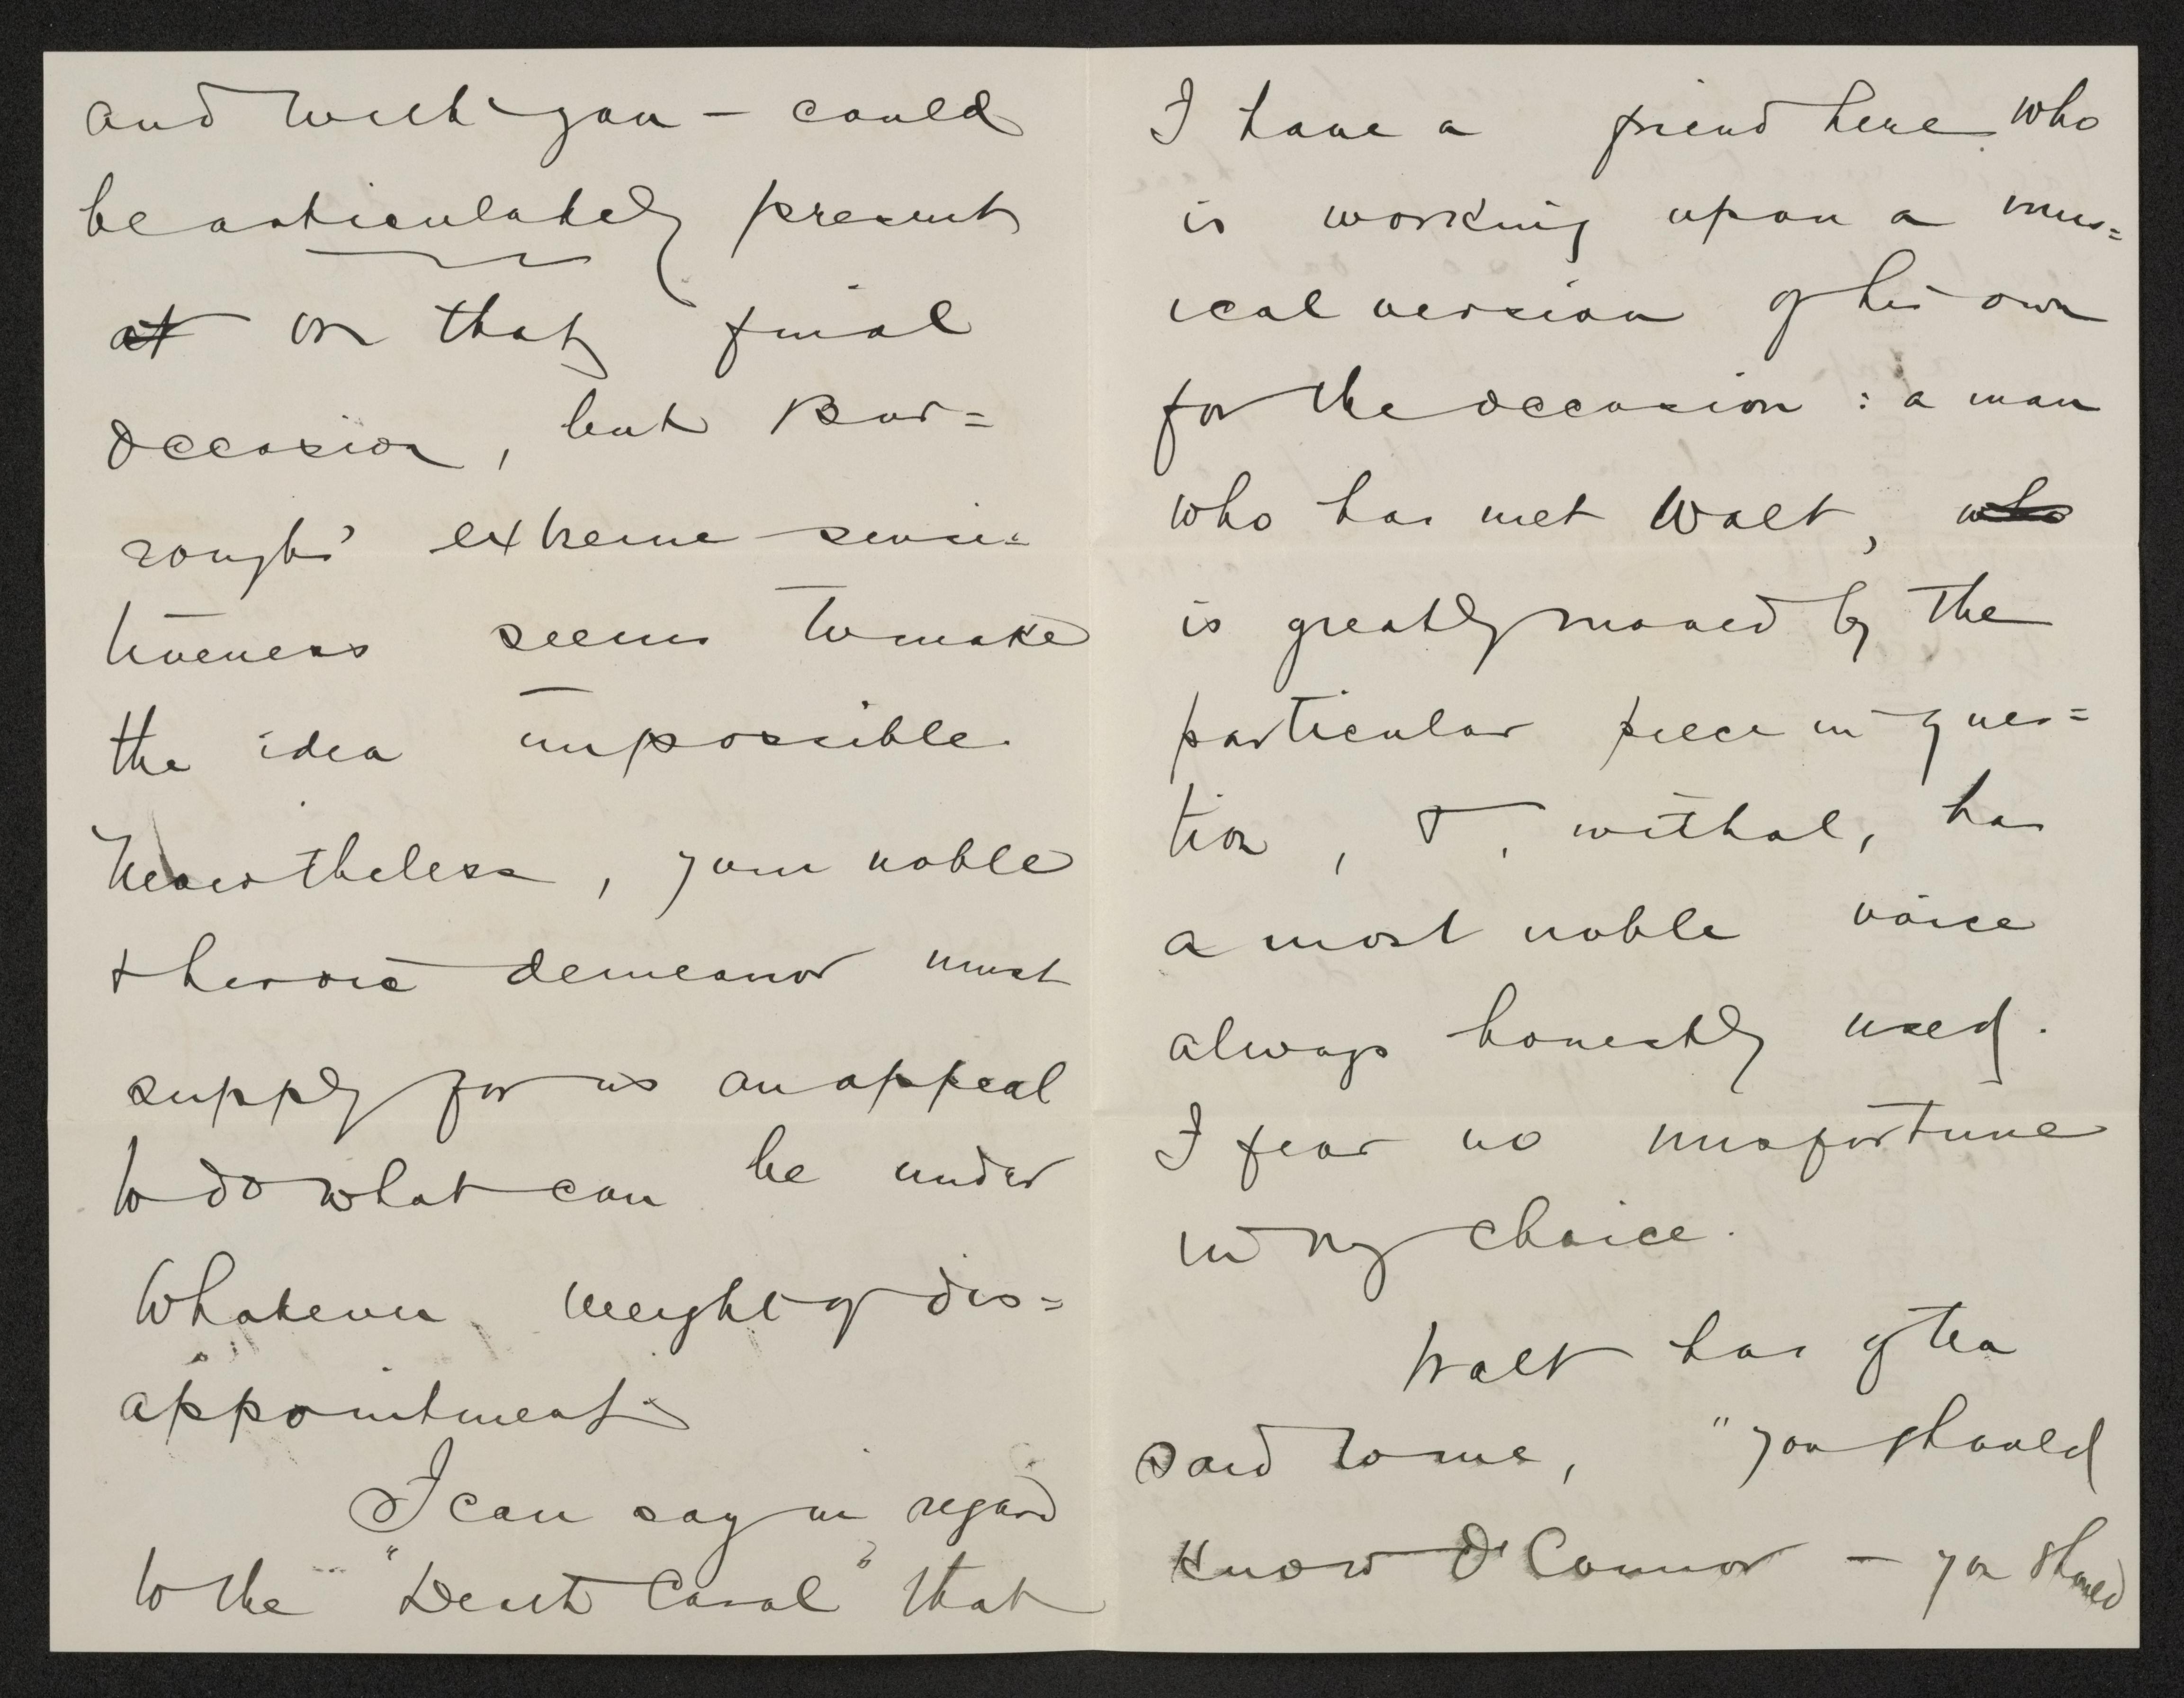 and with you – could
be articulately present
at on that final
occasion, but Bur=
roughs' extreme sensi=
tiveness seems to make
the idea impossible.
Nevertheless, your noble
& heroic demeanor must
supply for us an appeal
to do what can be under
whatever weight of dis=
appointment.
I can say in regard
to the "Death Carol" that
I have a friend here who
is working upon a mus=
ical version of his own
for the occasion : a man
who has met Walt, who
is greatly moved by the
particular piece in ques=
tion, &, withal, has
a most noble voice
always honestly used.
I fear no misfortune
in my choice.
Walt has often
said to me, "you should
know O'Connor – you should